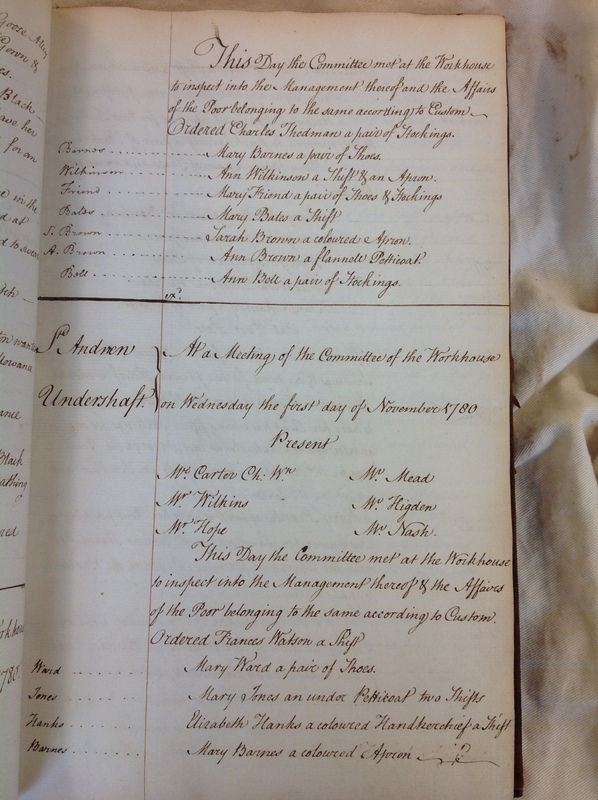 This Day the Committee met at the Workhouse
to inspect into the Management thereof and the Affairs
of the Poor belonging to the same according to Custom
Ordered Charles Thedman a pair of Stockings.
Barnes .......... Mary Barnes a pair of Shoes.
Wilkinson .......... Ann Wilkinson a Shift & an Apron.
Friend .......... Mary Friend a pair of Shoes & Stockings
Bates .......... Mary Bates a Shift
S. Brown .......... Sarah Brown a coloured Apron.
A. Brown .......... Ann Brown a flannell Petticoat.
Bell .......... Ann Bell a pair of Stockings.
St. Andrew
Undershaft.
At a Meeting of the Committee of the Workhouse
on Wednesday the first day of November 1780
Present
Mr. Carter Ch: Wn. Mr. Mead
Mr. Wilkins Mr. Higden
Mr. Hope Mr. Nash.
This Day the Committee met at the Workhouse
to inspect into the Management thereof & the Affaires
of the Poor belonging to the same according to Custom.
Ordered Frances Watson a Shift
Ward ........ Mary Ward a pair of Shoes.
Jones ........ Mary Jones an under Petticoat two Shifts
Hanks ........ Elizabeth Hanks a coloured Handkerchief a Shift
Barnes ....... Mary Barnes a coloured Apron